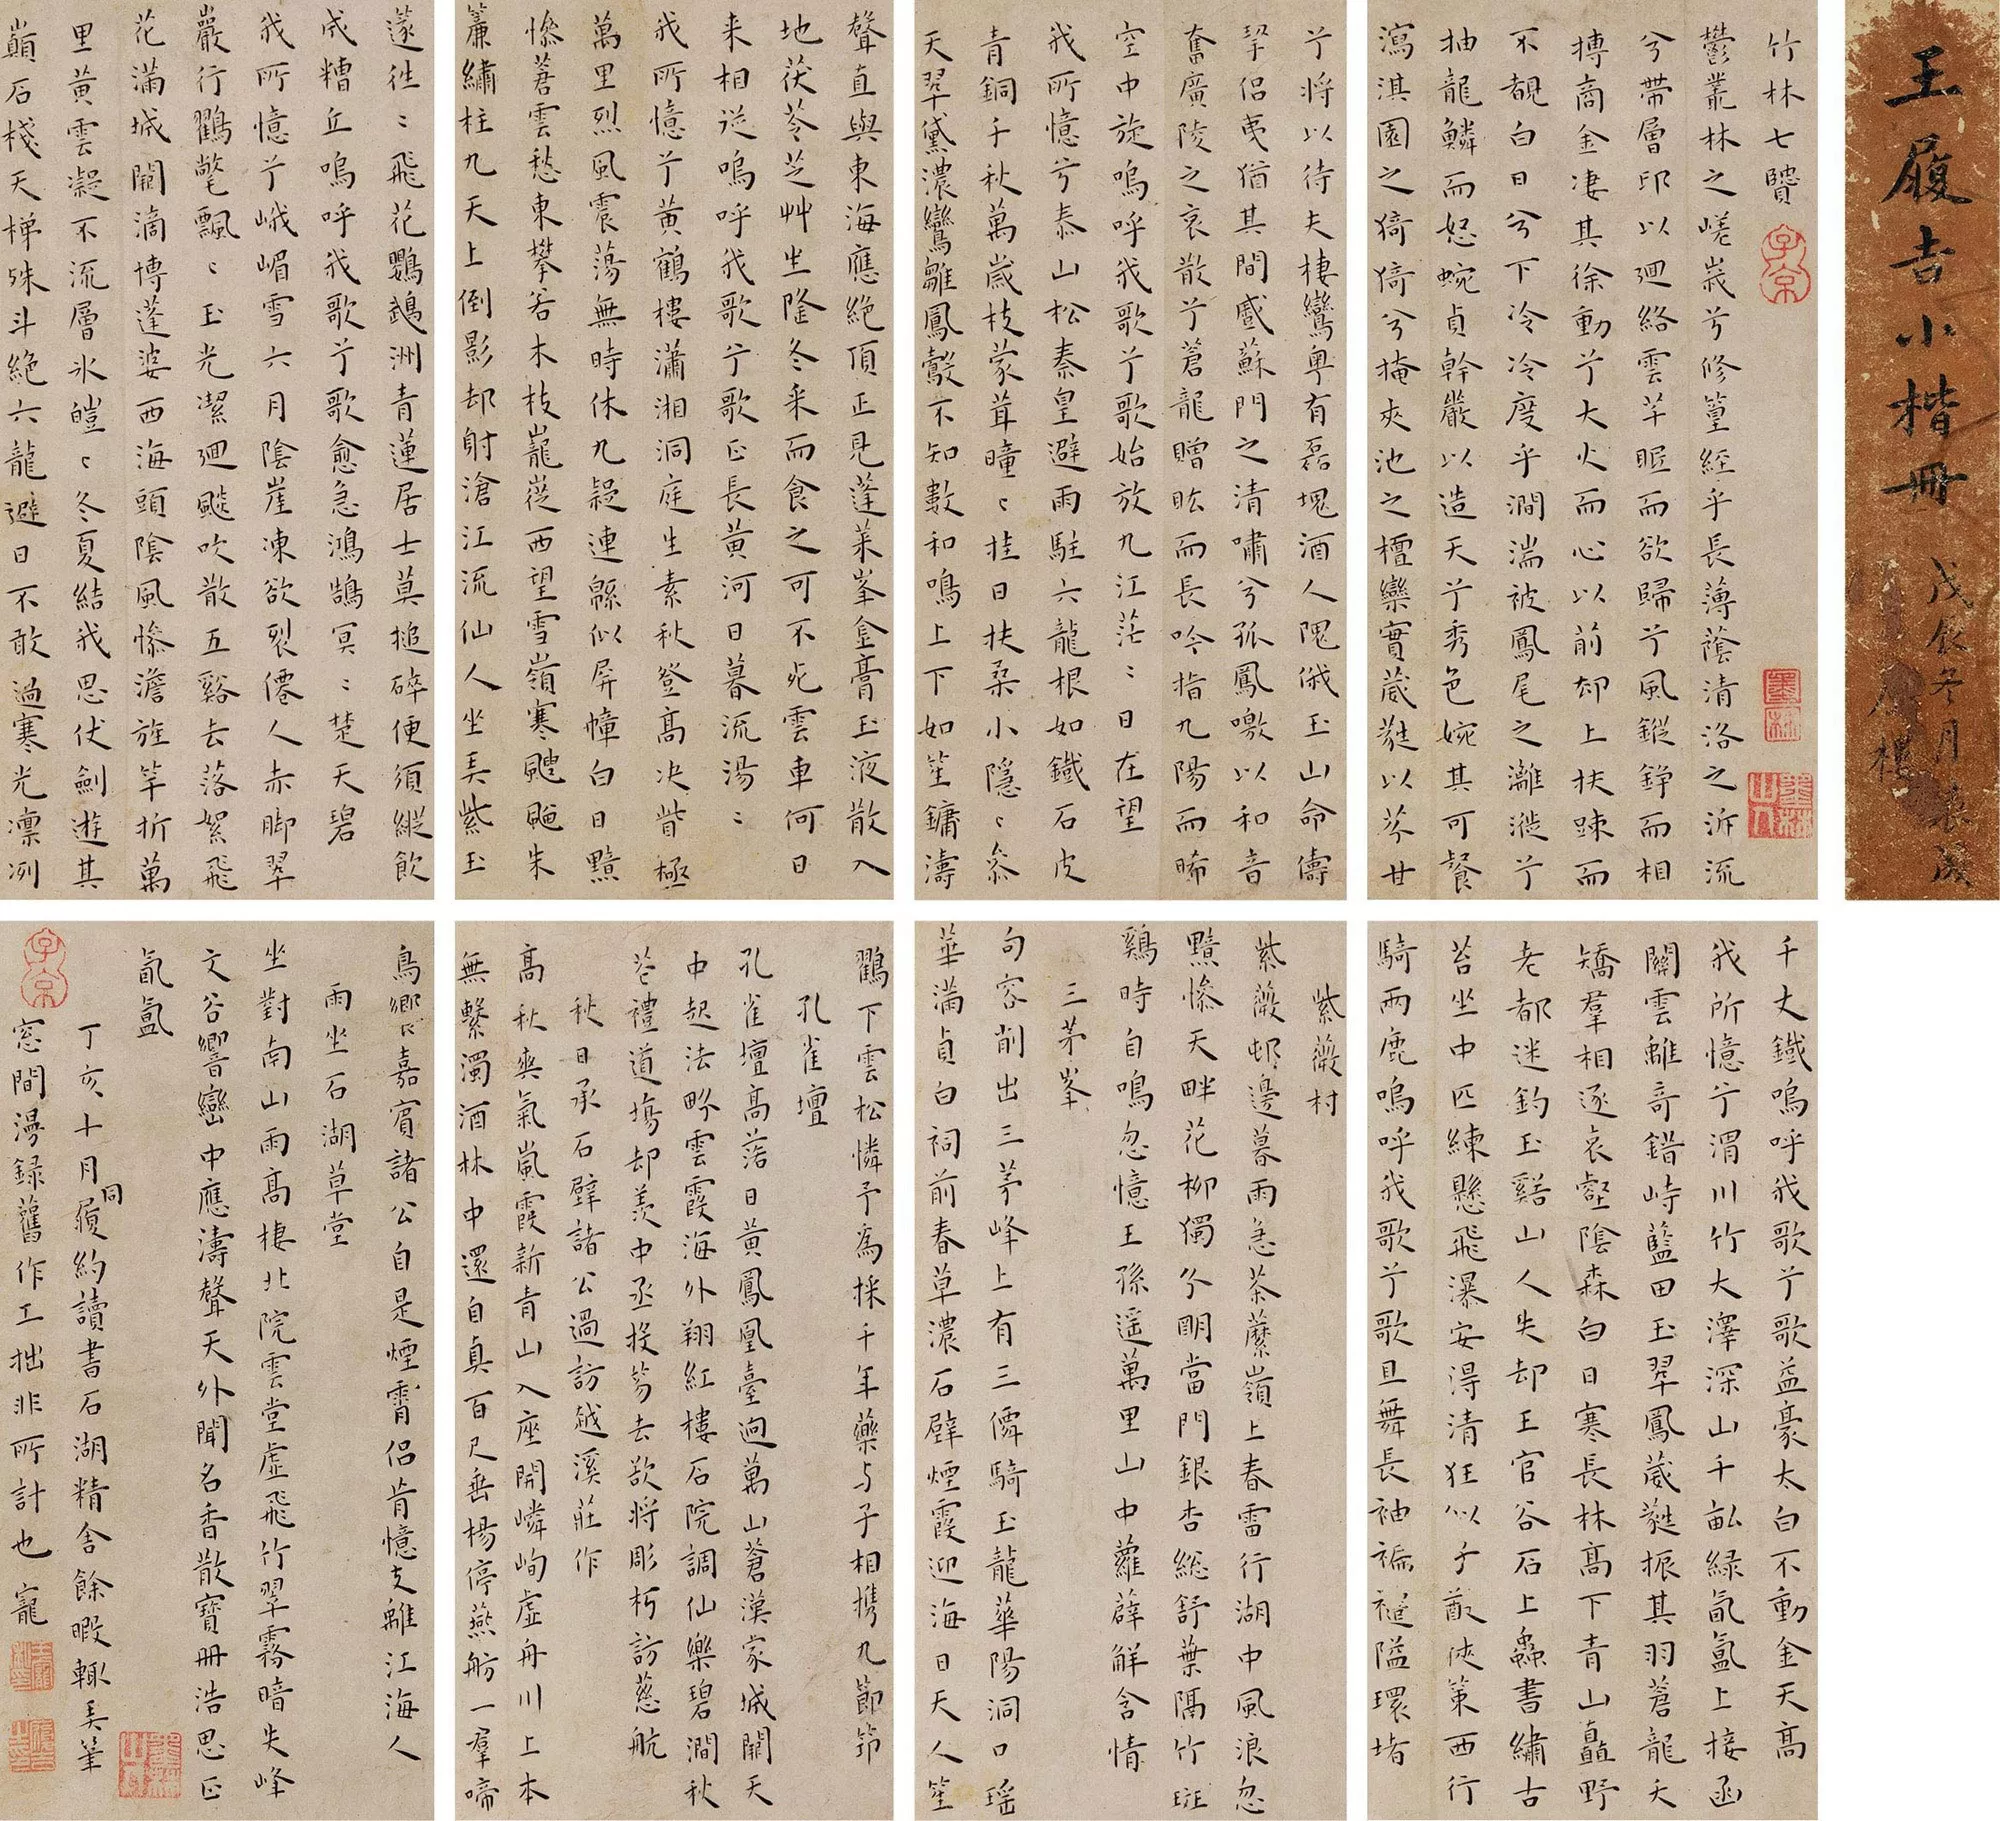 王履吉小楷冊
戊辰冬月裝潢
竹林七贒
鬱叢林之嵯峩兮修篁經乎長薄蔭清洛之泝流
兮帶層邱以迴絡雲芊眠而欲歸兮風鏦錚而相
摶商金凄其徐動兮大火而心以前却上扶踈而
不覩白日兮下泠泠度乎澗湍被鳳尾之灕漇兮
抽龍鱗而怒蜿貞幹嚴以造天兮秀色婉其可餐
瀉淇園之猗猗兮掩夾池之檀欒實葳蕤以芬甘
兮將以待夫棲鸞粵有磊塊酒人隗俄玉山命儔
挈侶夷猶其間感蘇門之清嘯兮孤鳳噭以和音
奮廣陵之哀散兮蒼龍贈昡而長吟指九陽而晞
空中旋嗚呼我歌兮歌始放九江茫〻日在望
我所憶兮泰山松秦皇避雨駐六龍根如鐵石皮
青銅千秋萬歲枝蒙茸曈〻挂日扶桑小隱〻叅
天翠黛濃鸞雛鳳鷇不知數和鳴上下如笙鏞濤
聲直與東海應絶頂正見蓬莱峯金膏玉液散入
地茯苓芝艸坐隆冬采而食之可不死雲車何日
来相從嗚呼我歌兮歌正長黄河日暮流湯〻
我所憶兮黄鶴樓瀟湘洞庭生素秋登髙决眥極
萬里烈風震蕩無時休九疑連緜似屏幛白日黯
慘蒼雲愁東攀若木枝巃嵸西望雪嶺寒颼飀朱
簾繡柱九天上倒影却射滄江流仙人坐弄紫玉
遂徃〻飛花鸚鵡洲青蓮居士莫搥碎便須縱飲
成糟丘嗚呼我歌兮歌愈急鴻鵠冥〻楚天碧
我所憶兮峨嵋雪六月陰崖凍欲裂僊人赤脚翠
巖行鸛氅飄〻玉光潔迴飈吹散五谿去落絮飛
花滿城闕滴博蓬婆西海頭陰風慘澹旌竿折萬
里黄雲凝不流層氷皚〻冬夏結我思伏劍遊其
巔石棧天梯殊斗絶六龍避日不敢過寒光凛冽
千丈鐵嗚呼我歌兮歌益豪太白不動金天髙
我所憶兮渭川竹大澤深山千畝緑氤氳上接函
關雲離竒錯峙藍田玉翠鳳葳蕤振其羽蒼龍夭
矯羣相逐哀壑陰森白日寒長林髙下青山矗野
老都迷釣玉谿山人失却王官谷石上蟲書繡古
苔坐中匹練懸飛瀑安得清狂似子猷俠策西行
騎兩鹿嗚呼我歌兮歌且舞長袖褊褼隘環堵
紫薇村
紫薇邨邊暮雨急茶蘼嶺上春雷行湖中風浪忽
黯慘天畔花柳獨分明當門銀杏總舒葉隔竹斑
鷄時自鳴忽憶王孫遥萬里山中蘿薜解含情
三茅峯
句容削出三茅峰上有三僊騎玉龍華陽洞口瑶
華滿貞白祠前春草濃石壁煙霞迎海日天人笙
鸛下雲松憐予為採千年藥与子相携九節筇
孔雀壇
孔雀壇髙落日黄鳳凰臺迥萬山蒼漢家城闕天
中起法畤雲霞海外翔紅樓石院調仙樂碧澗秋
苍禮道塲却羡中丞投笏去欲将彫朽訪慈航
秋日承石壁諸公過訪越溪莊作
髙秋爽氣嵐霞新青山入座開嶙峋虚舟川上本
無繫濁酒林中還自真百尺垂楊停燕舫一羣啼
鳥嚮嘉賓諸公自是煙霄侣肯憶支離江海人
雨坐石湖草堂
坐對南山雨髙棲北院雲堂虚飛竹翠霧暗失峰
文谷響巒中應濤聲天外聞名香散寶冊浩思正
氤氳
丁亥十月同履約讀書石湖精舍餘暇輙弄筆
窓間漫録舊作工拙非所計也寵